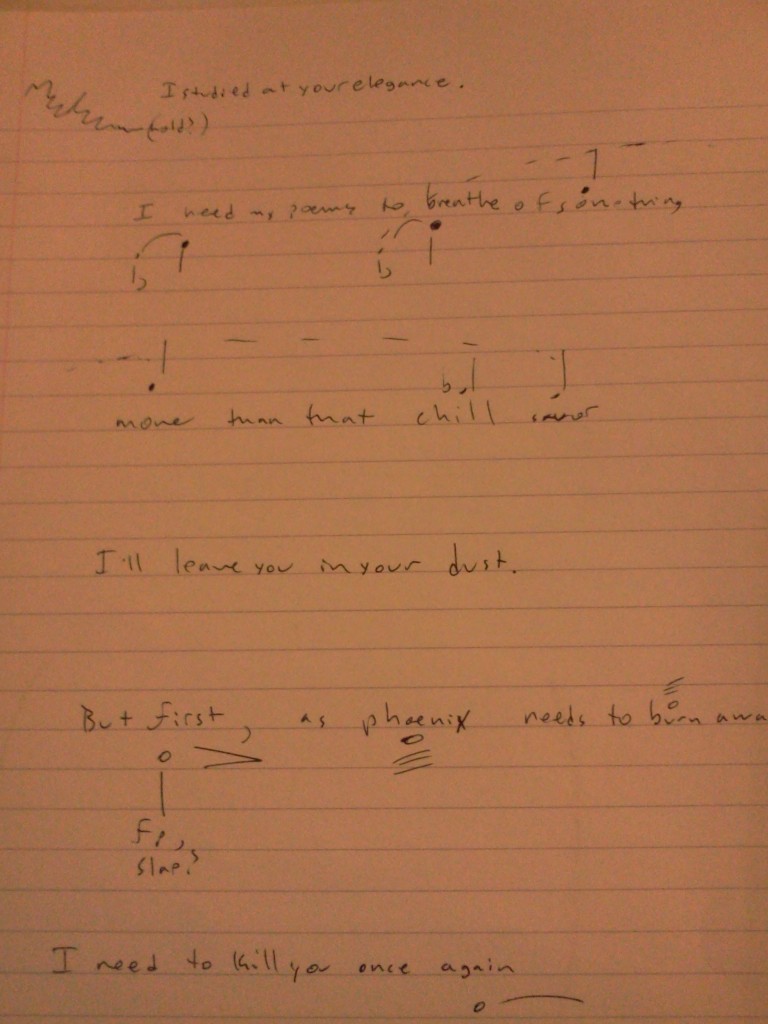 I studied at your elegance.
(hold?)
I need my poems to breathe of something
b b
b
more than that chill savor
I'll leave you in your dust.
But first, as phoenix needs to burn awa
fp,
slap?
I need to kill you once again